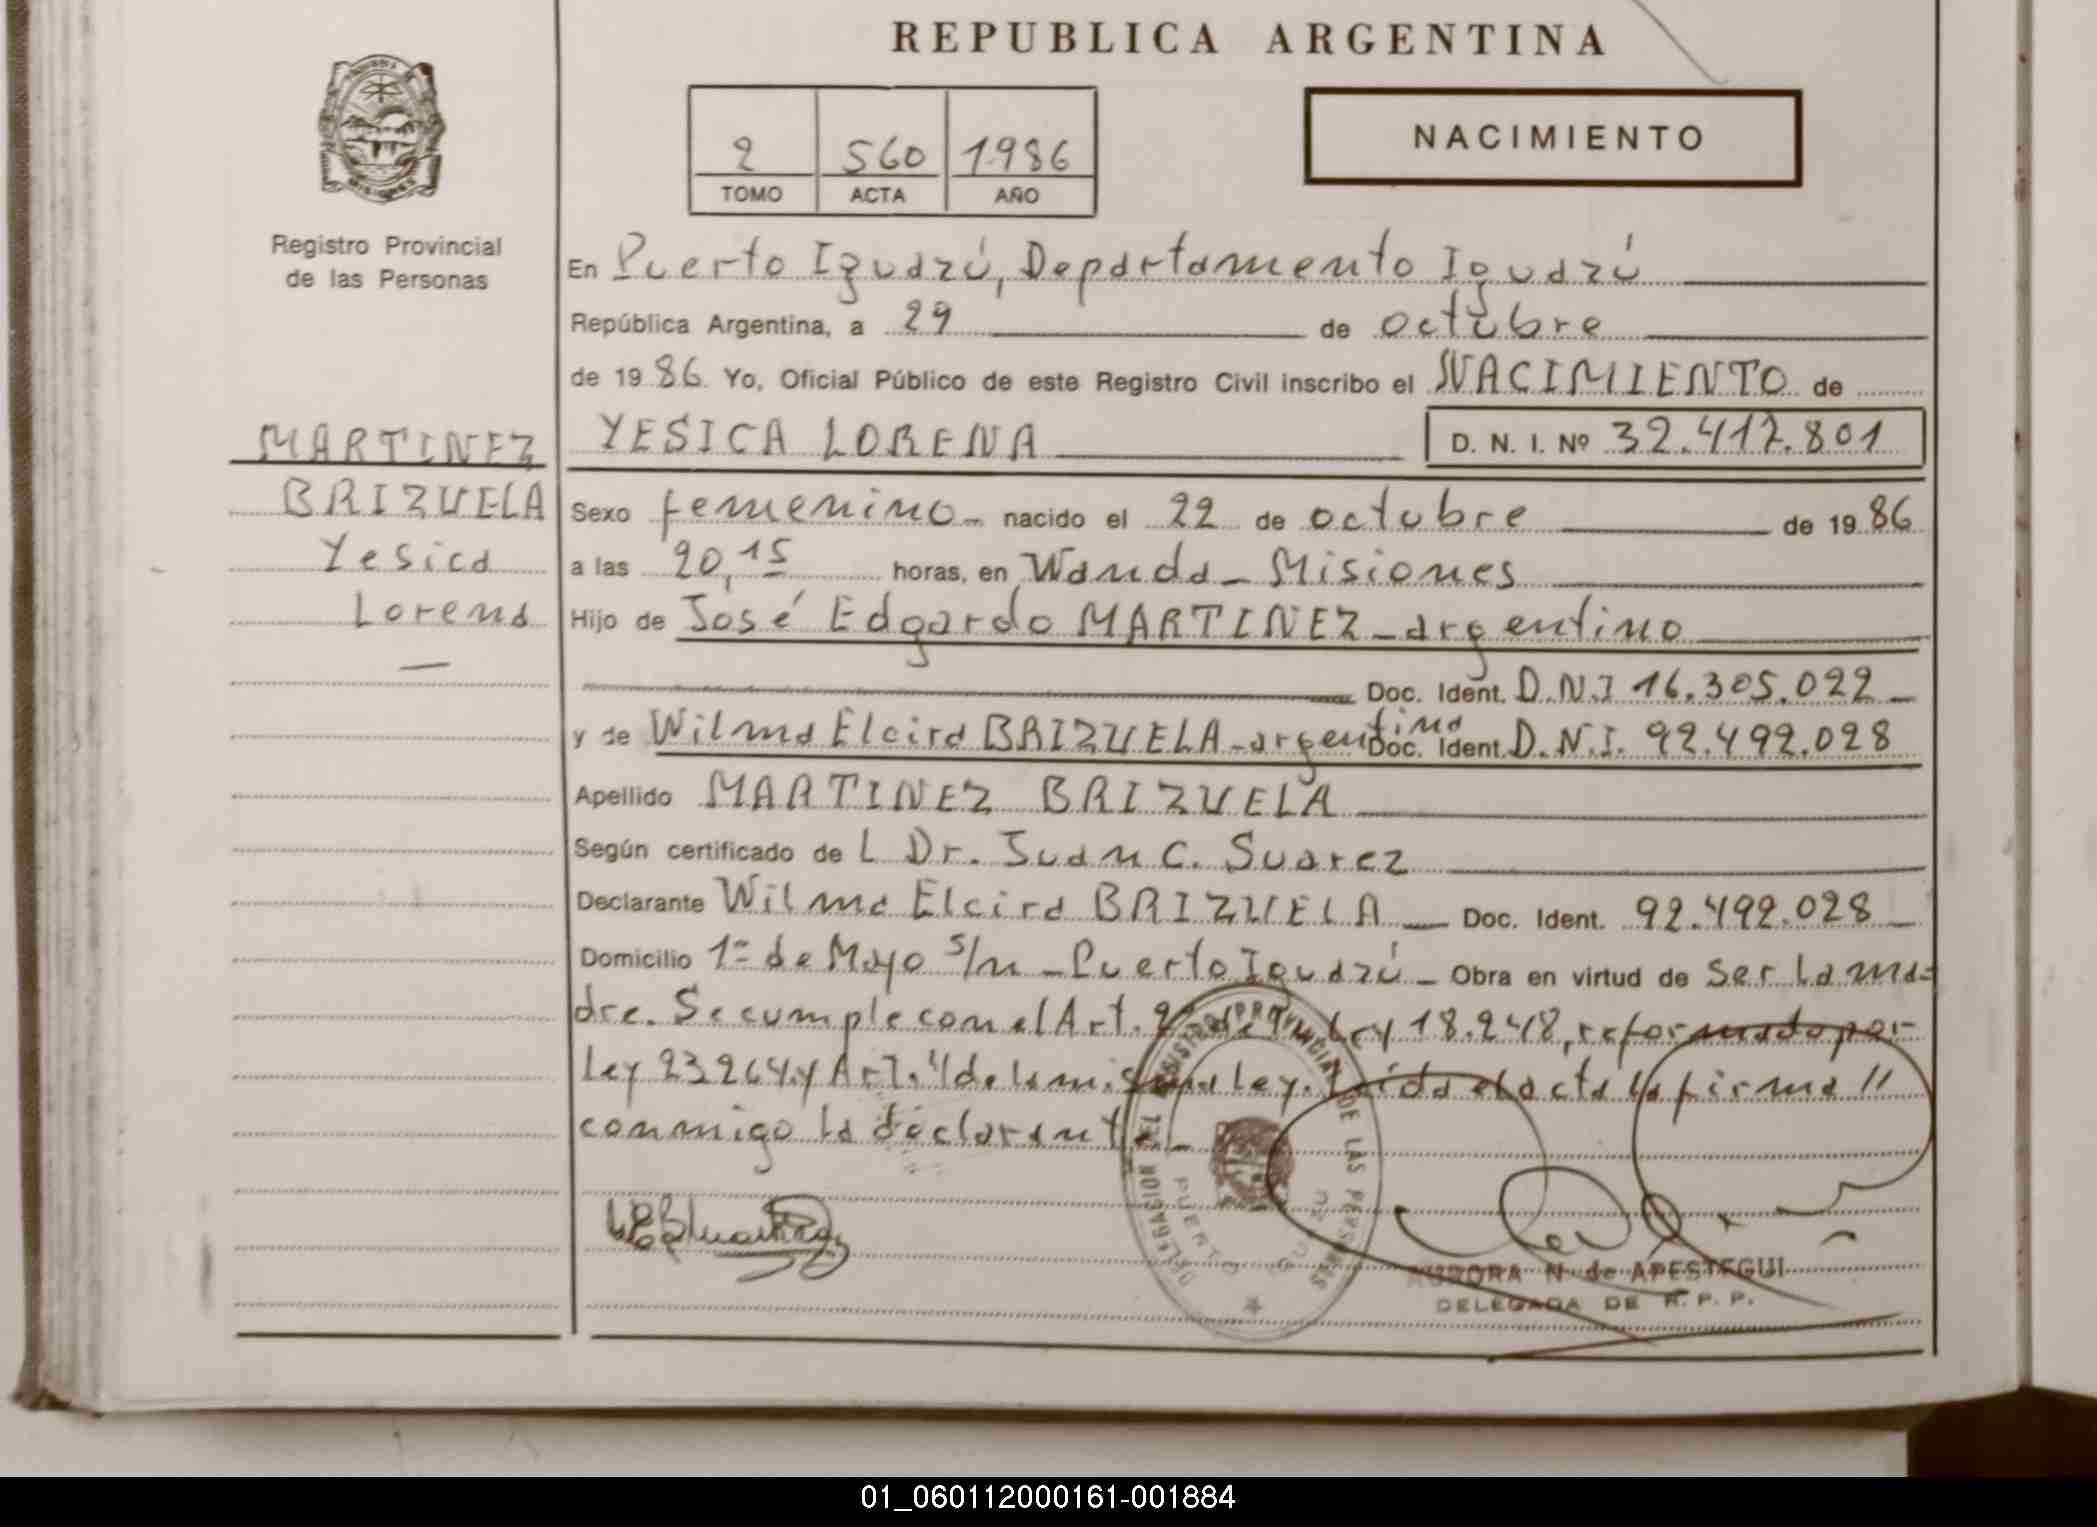 REPUBLICA ARGENTINA
NACIMIENTO
2 560 1986
TOMO ACTA AÑO
Registro Provincial
de las Personas
En Puerto Iguazú, Departamento Iguazú
República Argentina, a 29 de octubre
de 19 86. Yo, Oficial Público de este Registro Civil inscribo el NACIMIENTO de
MARTINEZ
BRIZUELA
Yesica
Lorena
YESICA LORENA D. N. I. Nº 32.417.801
Sexo femenino nacido el 22 de octubre de 19 86
a las 20,15 horas, en Wanda - Misiones
Hijo de José Edgardo MARTINEZ - argentino
Doc. Ident. D.N.I 16.305.022
y de Wilma Elcira BRIZUELA - argentina Doc. Ident. D.N.I. 92.492.028
Apellido MARTINEZ BRIZUELA
Según certificado de L Dr. Juan C. Suarez
Declarante Wilma Elcira BRIZUELA Doc. Ident. 92.492.028
Domicilio 1º de Mayo s/n - Puerto Iguazú - Obra en virtud de ser la ma=
dre. Se cumple con el Art. Ley 18.248, reformado por
Ley 23264 y Art. 4 de la misma Ley. Leída el acta la firma //
conmigo la declarante.
DELEGACION DEL REGISTRO PROVINCIAL DE LAS PERSONAS
PUERTO IGUAZU
AURORA N. de APESTEGUI
DELEGADA DE R. P. P.
01_060112000161-001884